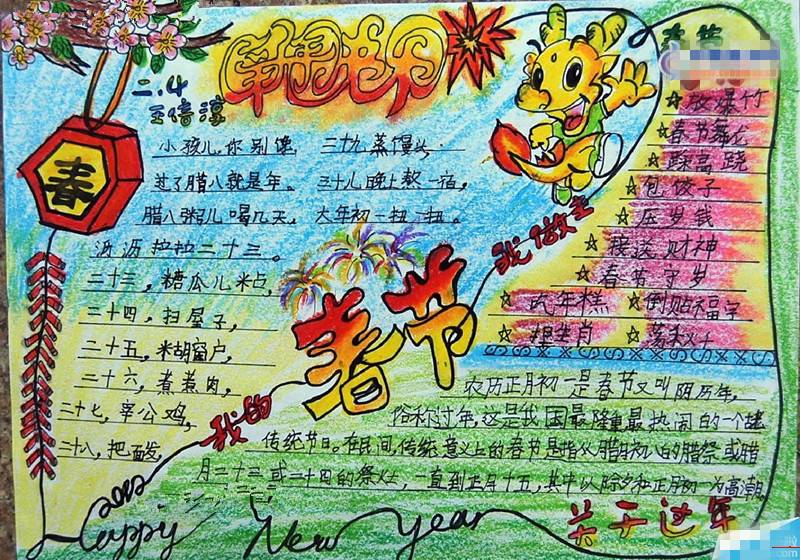 二.4
春
小孩儿,你别馋,
过了腊八就是年。
腊八粥儿喝几天,
沥沥拉拉二十三。
二十三,糖瓜儿米占,
二十四,扫屋子,
二十五,米胡窗户,
二十六,煮煮肉,
二十七,宰公鸡,
二十八,把面发,
二十九,蒸馒头,
三十儿晚上熬一宿,
大年初一扭一扭。
春节
放爆竹
春节舞龙
踩高跷
包饺子
压岁钱
接送财神
春节守岁
吃年糕
倒贴福字
捏生肖
荡秋千
我的
春节
我做主
农历正月初一是春节又叫阴历年,
俗称过年,这是我国最隆重最热闹的一个
传统节日。在民间,传统意义上的春节是指从腊月初八的腊祭或腊
月二十三或二十四的祭灶,一直到正月十五,其中以除夕和正月初一为高潮。
2012
Happy New Year
关于过年